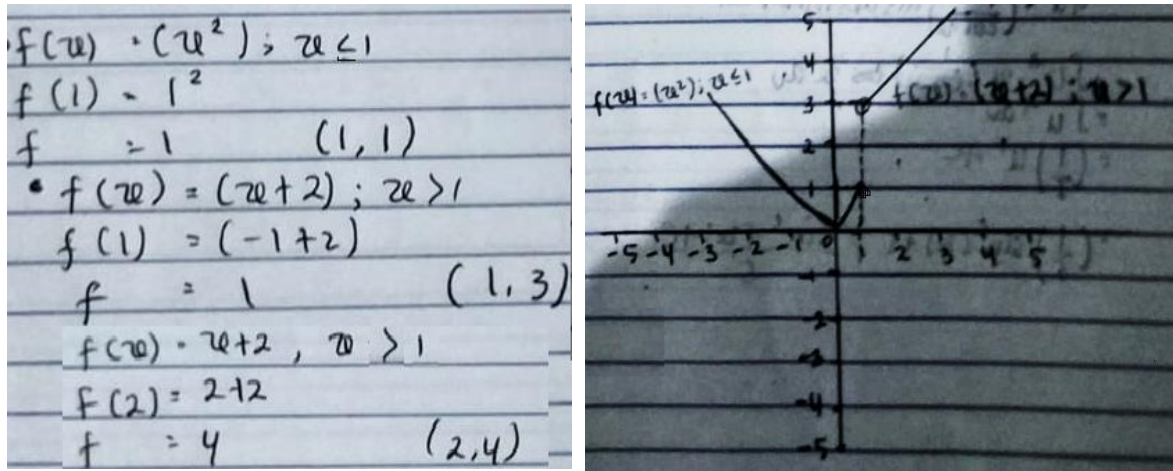 • f(x) = (x²); x ≤ 1
f(1) = 1²
f = 1 (1, 1)
• f(x) = (x+2); x > 1
f(1) = (-1+2)
f = 1 (1, 3)
f(x) = x+2, x > 1
f(2) = 2+2
f = 4 (2,4)
5
4
f(x) = (x²); x ≤ 1
3
f(x) = (x+2); x > 1
2
1
-5 -4 -3 -2 -1 0 1 2 3 4 5
-1
-2
-3
-4
-5